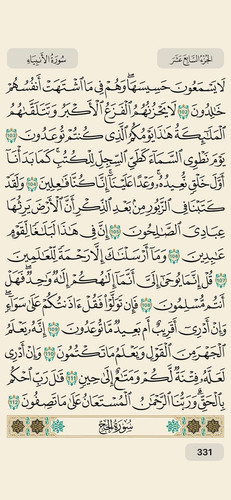 سُورَةُ الأَنبِيَاءِ الجُزْءُ السَّابِعَ عَشَرَ
لَا يَسْمَعُونَ حَسِيسَهَا ۖ وَهُمْ فِي مَا ٱشْتَهَتْ أَنفُسُهُمْ
خَٰلِدُونَ ١٠٢ لَا يَحْزُنُهُمُ ٱلْفَزَعُ ٱلْأَكْبَرُ وَتَتَلَقَّىٰهُمُ
ٱلْمَلَٰٓئِكَةُ هَٰذَا يَوْمُكُمُ ٱلَّذِي كُنتُمْ تُوعَدُونَ ١٠٣
يَوْمَ نَطْوِي ٱلسَّمَآءَ كَطَيِّ ٱلسِّجِلِّ لِلْكُتُبِ ۚ كَمَا بَدَأْنَآ
أَوَّلَ خَلْقٍ نُّعِيدُهُۥ ۚ وَعْدًا عَلَيْنَآ ۚ إِنَّا كُنَّا فَٰعِلِينَ ١٠٤ وَلَقَدْ
كَتَبْنَا فِي ٱلزَّبُورِ مِنۢ بَعْدِ ٱلذِّكْرِ أَنَّ ٱلْأَرْضَ يَرِثُهَا
عِبَادِيَ ٱلصَّٰلِحُونَ ١٠٥ إِنَّ فِي هَٰذَا لَبَلَٰغًا لِّقَوْمٍ
عَٰبِدِينَ ١٠٦ وَمَآ أَرْسَلْنَٰكَ إِلَّا رَحْمَةً لِّلْعَٰلَمِينَ
١٠٧ قُلْ إِنَّمَا يُوحَىٰٓ إِلَيَّ أَنَّمَآ إِلَٰهُكُمْ إِلَٰهٌ وَٰحِدٌ ۖ فَهَلْ
أَنتُم مُّسْلِمُونَ ١٠٨ فَإِن تَوَلَّوْاْ فَقُلْ ءَاذَنتُكُمْ عَلَىٰ سَوَآءٍ ۖ
وَإِنْ أَدْرِيٓ أَقَرِيبٌ أَم بَعِيدٌ مَّا تُوعَدُونَ ١٠٩ إِنَّهُۥ يَعْلَمُ
ٱلْجَهْرَ مِنَ ٱلْقَوْلِ وَيَعْلَمُ مَا تَكْتُمُونَ ١١٠ وَإِنْ أَدْرِي
لَعَلَّهُۥ فِتْنَةٌ لَّكُمْ وَمَتَٰعٌ إِلَىٰ حِينٍ ١١١ قَٰلَ رَبِّ ٱحْكُم
بِٱلْحَقِّ ۗ وَرَبُّنَا ٱلرَّحْمَٰنُ ٱلْمُسْتَعَانُ عَلَىٰ مَا تَصِفُونَ ١١٢
سُورَةُ الحَجِّ
331